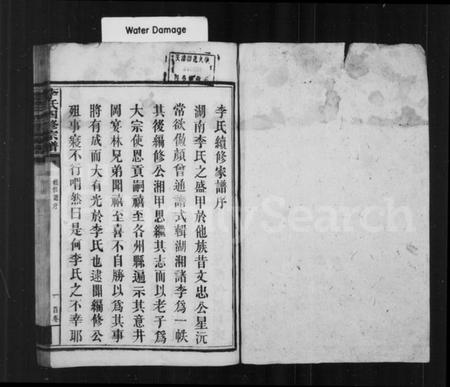 Water Damage
李氏續修家譜序
湖南李氏之盛甲於他族昔文忠公星沅
常欲倣顏曾通譜式輯湖湘諸李為一帙
其後編修公湘甲思繼其志而以老子為
大宗使恩貢嗣禧至各州縣遍示其意井
岡宴林兄弟聞禧至喜不自勝以為其事
將有成而大有光於李氏也逮聞編修公
殂事寢不行喟然曰是何李氏之不幸耶
李氏四修宗譜
首卷
FamilySearch